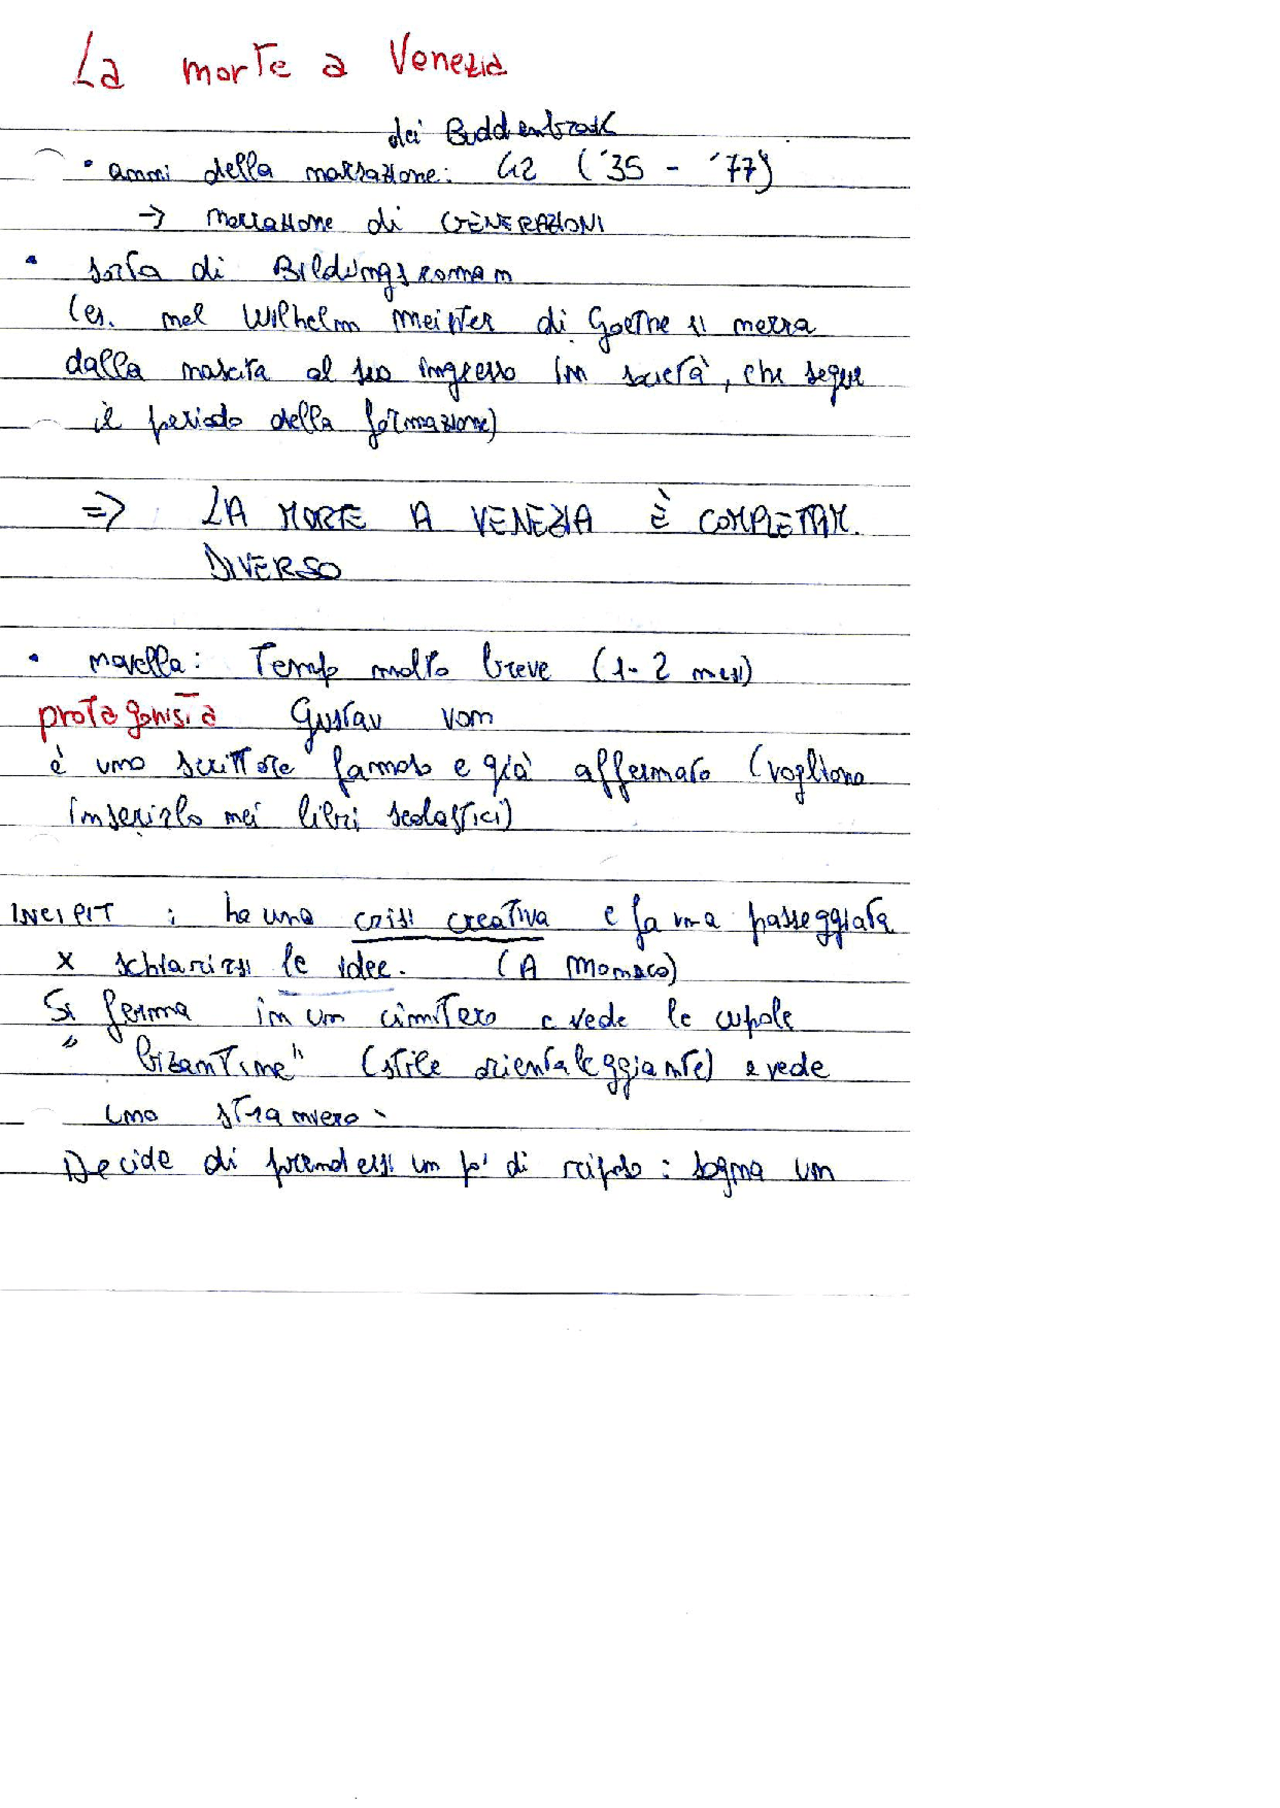 La morte a Venezia
dei Buddenbrook
• anni della narrazione: 42 ('35 - '77)
→ narrazione di GENERAZIONI
• sorta di Bildungsroman
(es. nel Wilhelm Meister di Goethe si narra
dalla nascita al suo ingresso in società, che segue
il periodo della formazione)
=> LA MORTE A VENEZIA È COMPLETAM.
DIVERSO
• novella: Tempo molto breve (1-2 mesi)
protagonista Gustav von
è uno scrittore famoso e già affermato (vogliono
inserirlo nei libri scolastici)
INCIPIT : ha una crisi creativa e fa una passeggiata
x schiarirsi le idee. (A Monaco)
Si ferma in un cimitero e vede le cupole
"bizantine" (stile orientaleggiante) e vede
uno straniero.
Decide di prendersi un po' di riposo: sogna un